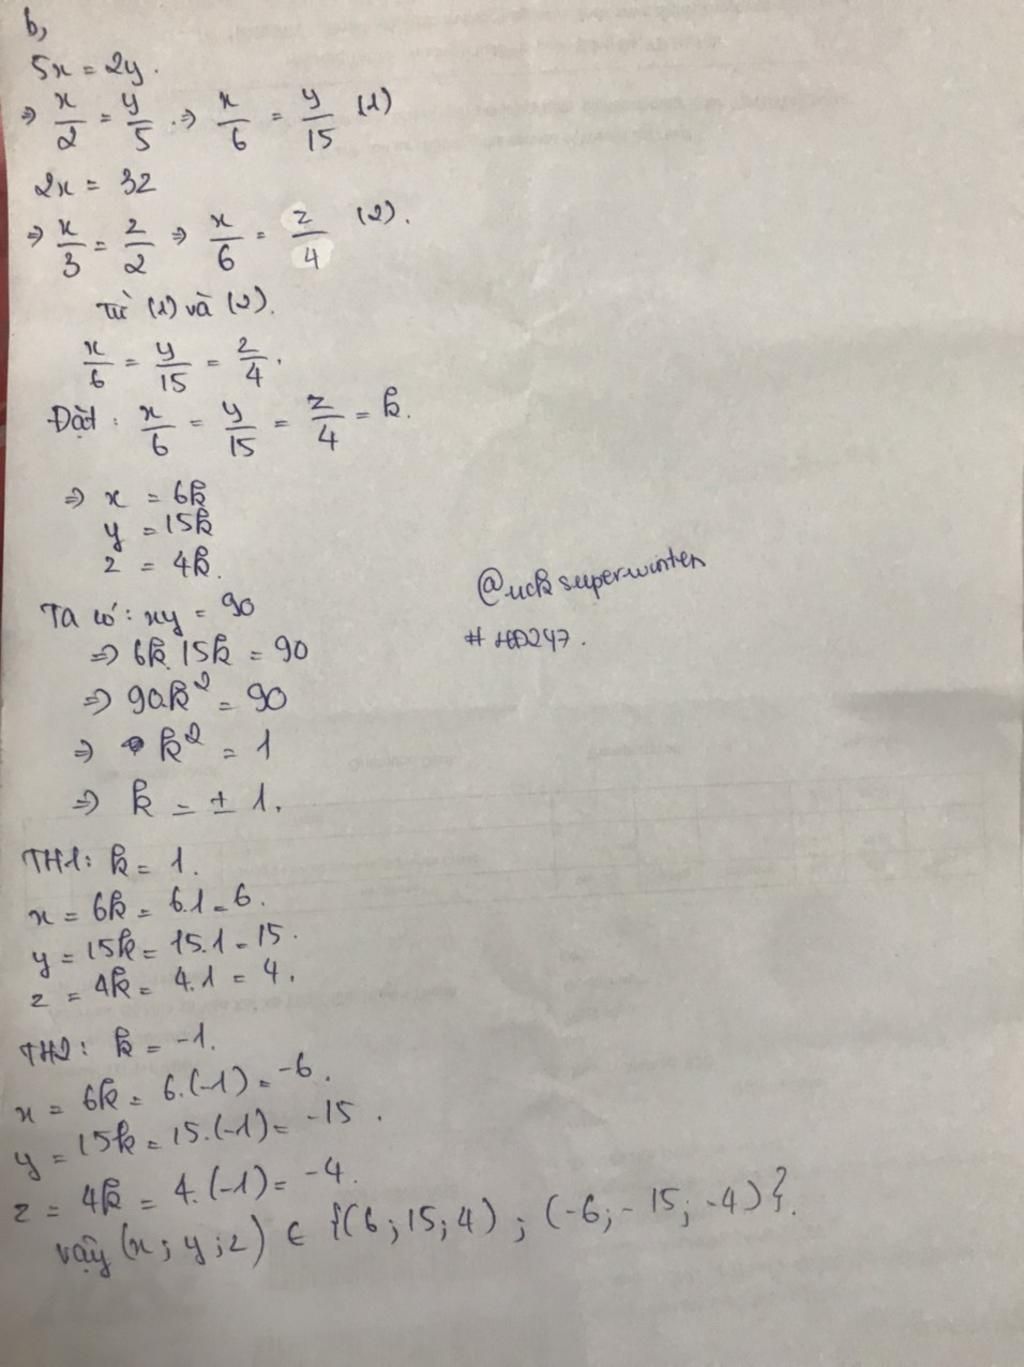 b,
5x = 2y.
⇒ x/2 = y/5 ⇒ x/6 = y/15 (1)
2x = 3z
⇒ x/3 = z/2 ⇒ x/6 = z/4 (2).
Từ (1) và (2).
x/6 = y/15 = z/4.
Đặt: x/6 = y/15 = z/4 = k.
⇒ x = 6k
y = 15k
z = 4k.
Ta có: xy = 90
⇒ 6k.15k = 90
⇒ 90k² = 90
⇒ k² = 1
⇒ k = ± 1.
@ucksuperwinter
#HD247.
TH1: k = 1.
x = 6k = 6.1 = 6.
y = 15k = 15.1 = 15.
z = 4k = 4.1 = 4.
TH2: k = -1.
x = 6k = 6.(-1) = -6.
y = 15k = 15.(-1) = -15.
z = 4k = 4.(-1) = -4.
vậy (x; y; z) ∈ {(6; 15; 4); (-6; -15; -4)}.